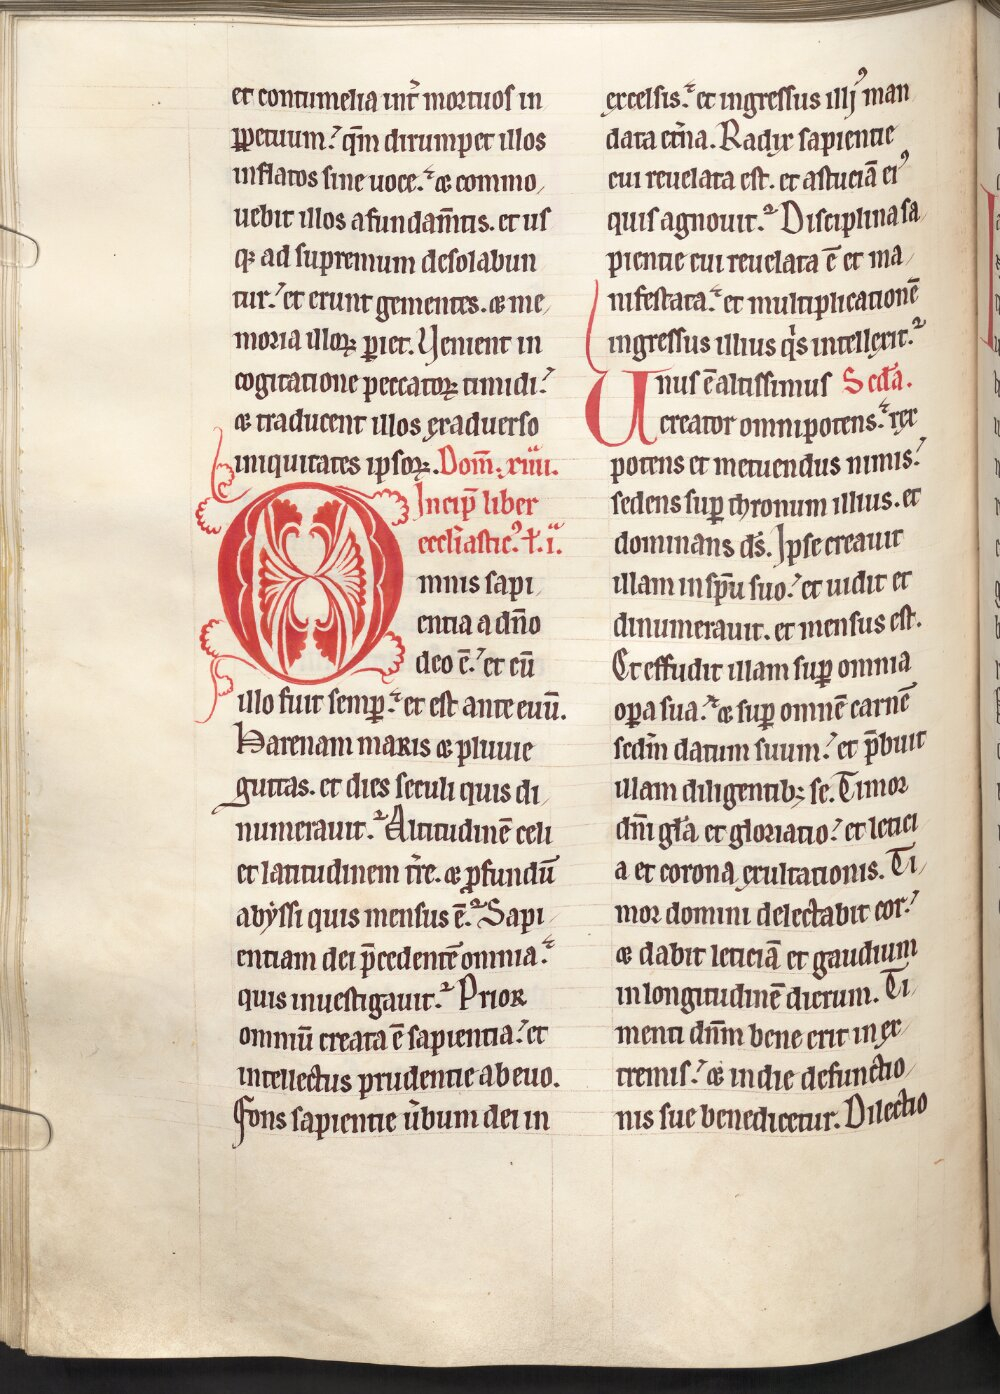 et contumelia int̄ mortuos in
ꝑpetuum. qm̄ dirumpet illos
inflatos sine uoce. ⁊ commo
uebit illos a fundam̄tis. et us
q; ad supremum desolabun
tur. et erunt gementes. ⁊ me
moria illoꝝ ꝑiet. Venient in
cogitatione peccatoꝝ timidi.
⁊ traducent illos ex aduerso
iniquitates ipsoꝝ. Dom̄. xiiii.
Incip̄ liber
eccl̄iastic⁹. t. i.
Omnis sapi
entia a dn̄o
deo ē. et cū
illo fuit semꝑ. et est ante euū.
Harenam maris ⁊ pluuie
guttas. et dies seculi quis di
numerauit. Altitudinē celi
et latitudinem tr̄e. ⁊ ꝓfundū
abyssi quis mensus ē. Sapi
entiam dei p̄cedentē omnia.
quis inuestigauit. Prior
omniū creata ē sapientia. et
intellectus prudentie ab euo.
Fons sapientie ūbum dei in
excelsis. et ingressus illi⁹ man
data et̄na. Radix sapientie
cui reuelata est. et astuciā ei⁹
quis agnouit. Disciplina sa
pientie cui reuelata ē et ma
nifestata. et multiplicationē
ingressus illius q̇s intellexit.
Unus ē altissimus Scd̄a.
creator omnipotens. rex
potens et metuendus nimis.
sedens suꝑ thronum illius. et
dominans ds̄. Ipse creauit
illam in sp̄u suo. et uidit et
dinumerauit. et mensus est.
Et effudit illam suꝑ omnia
oꝑa sua. ⁊ suꝑ omnē carnē
scdm̄ datum suum. et p̄buit
illam diligentib; se. Timor
dn̄i gl̄a et gloriatio. et letici
a et corona exultationis. Ti
mor domini delectabit cor.
⁊ dabit leticiā et gaudium
in longitudinē dierum. Ti
menti dn̄m bene erit in ex
tremis. ⁊ in die defunctio
nis sue benedicetur. Dilectio